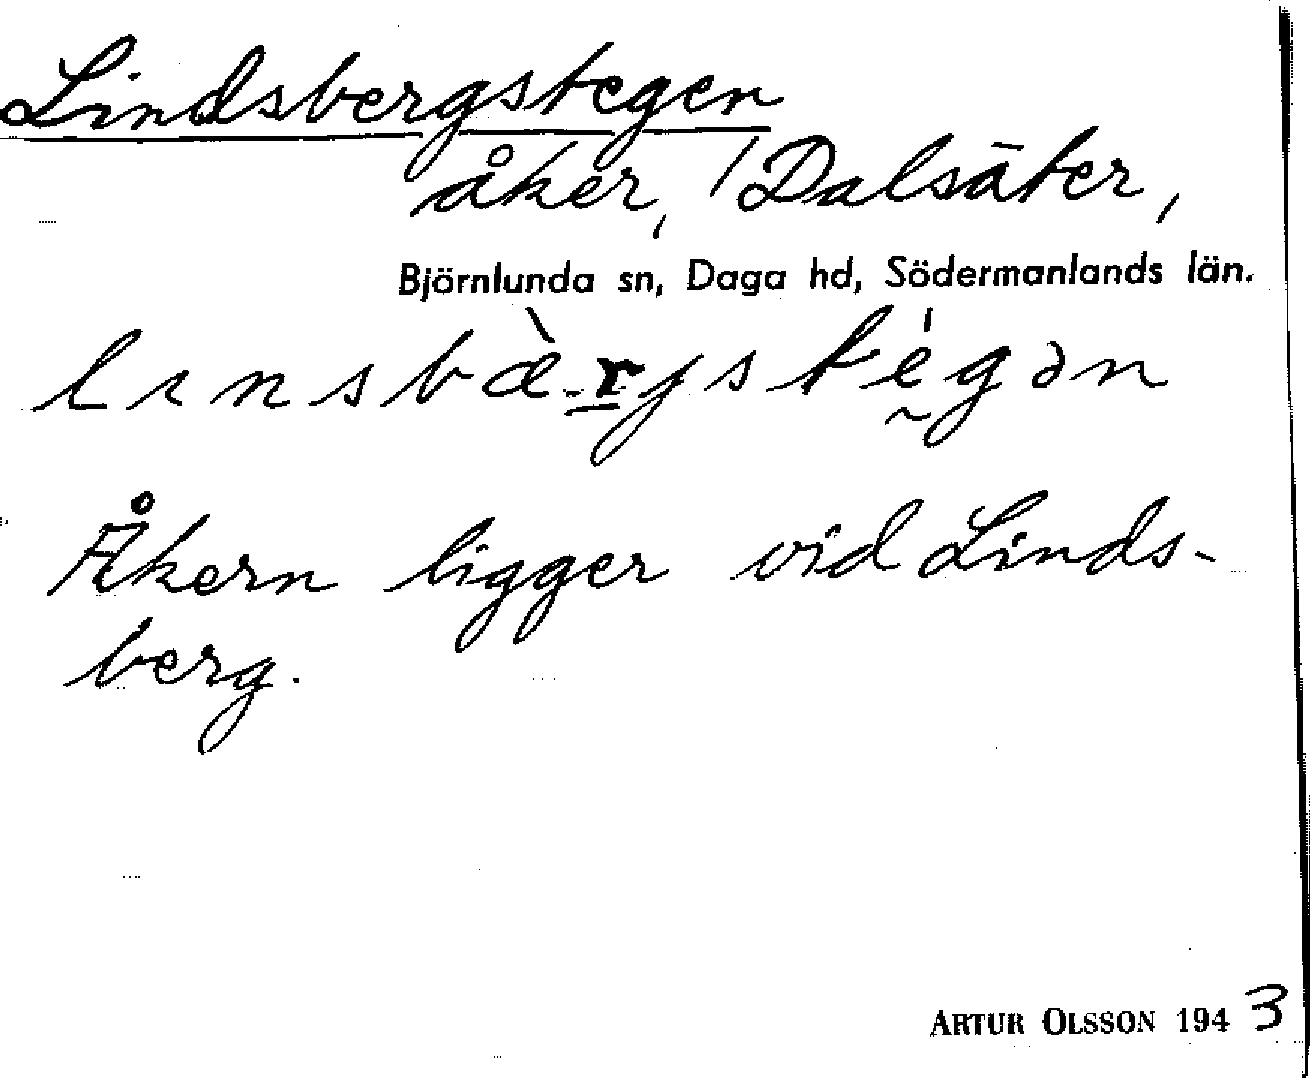 Lindsbergstegen
åker, / Dalsäter,
Björnlunda sn, Daga hd, Södermanlands län.
lɩnsbæ̀rjstégən
Åkern ligger vid Linds-
berg.
ARTUR OLSSON 1943